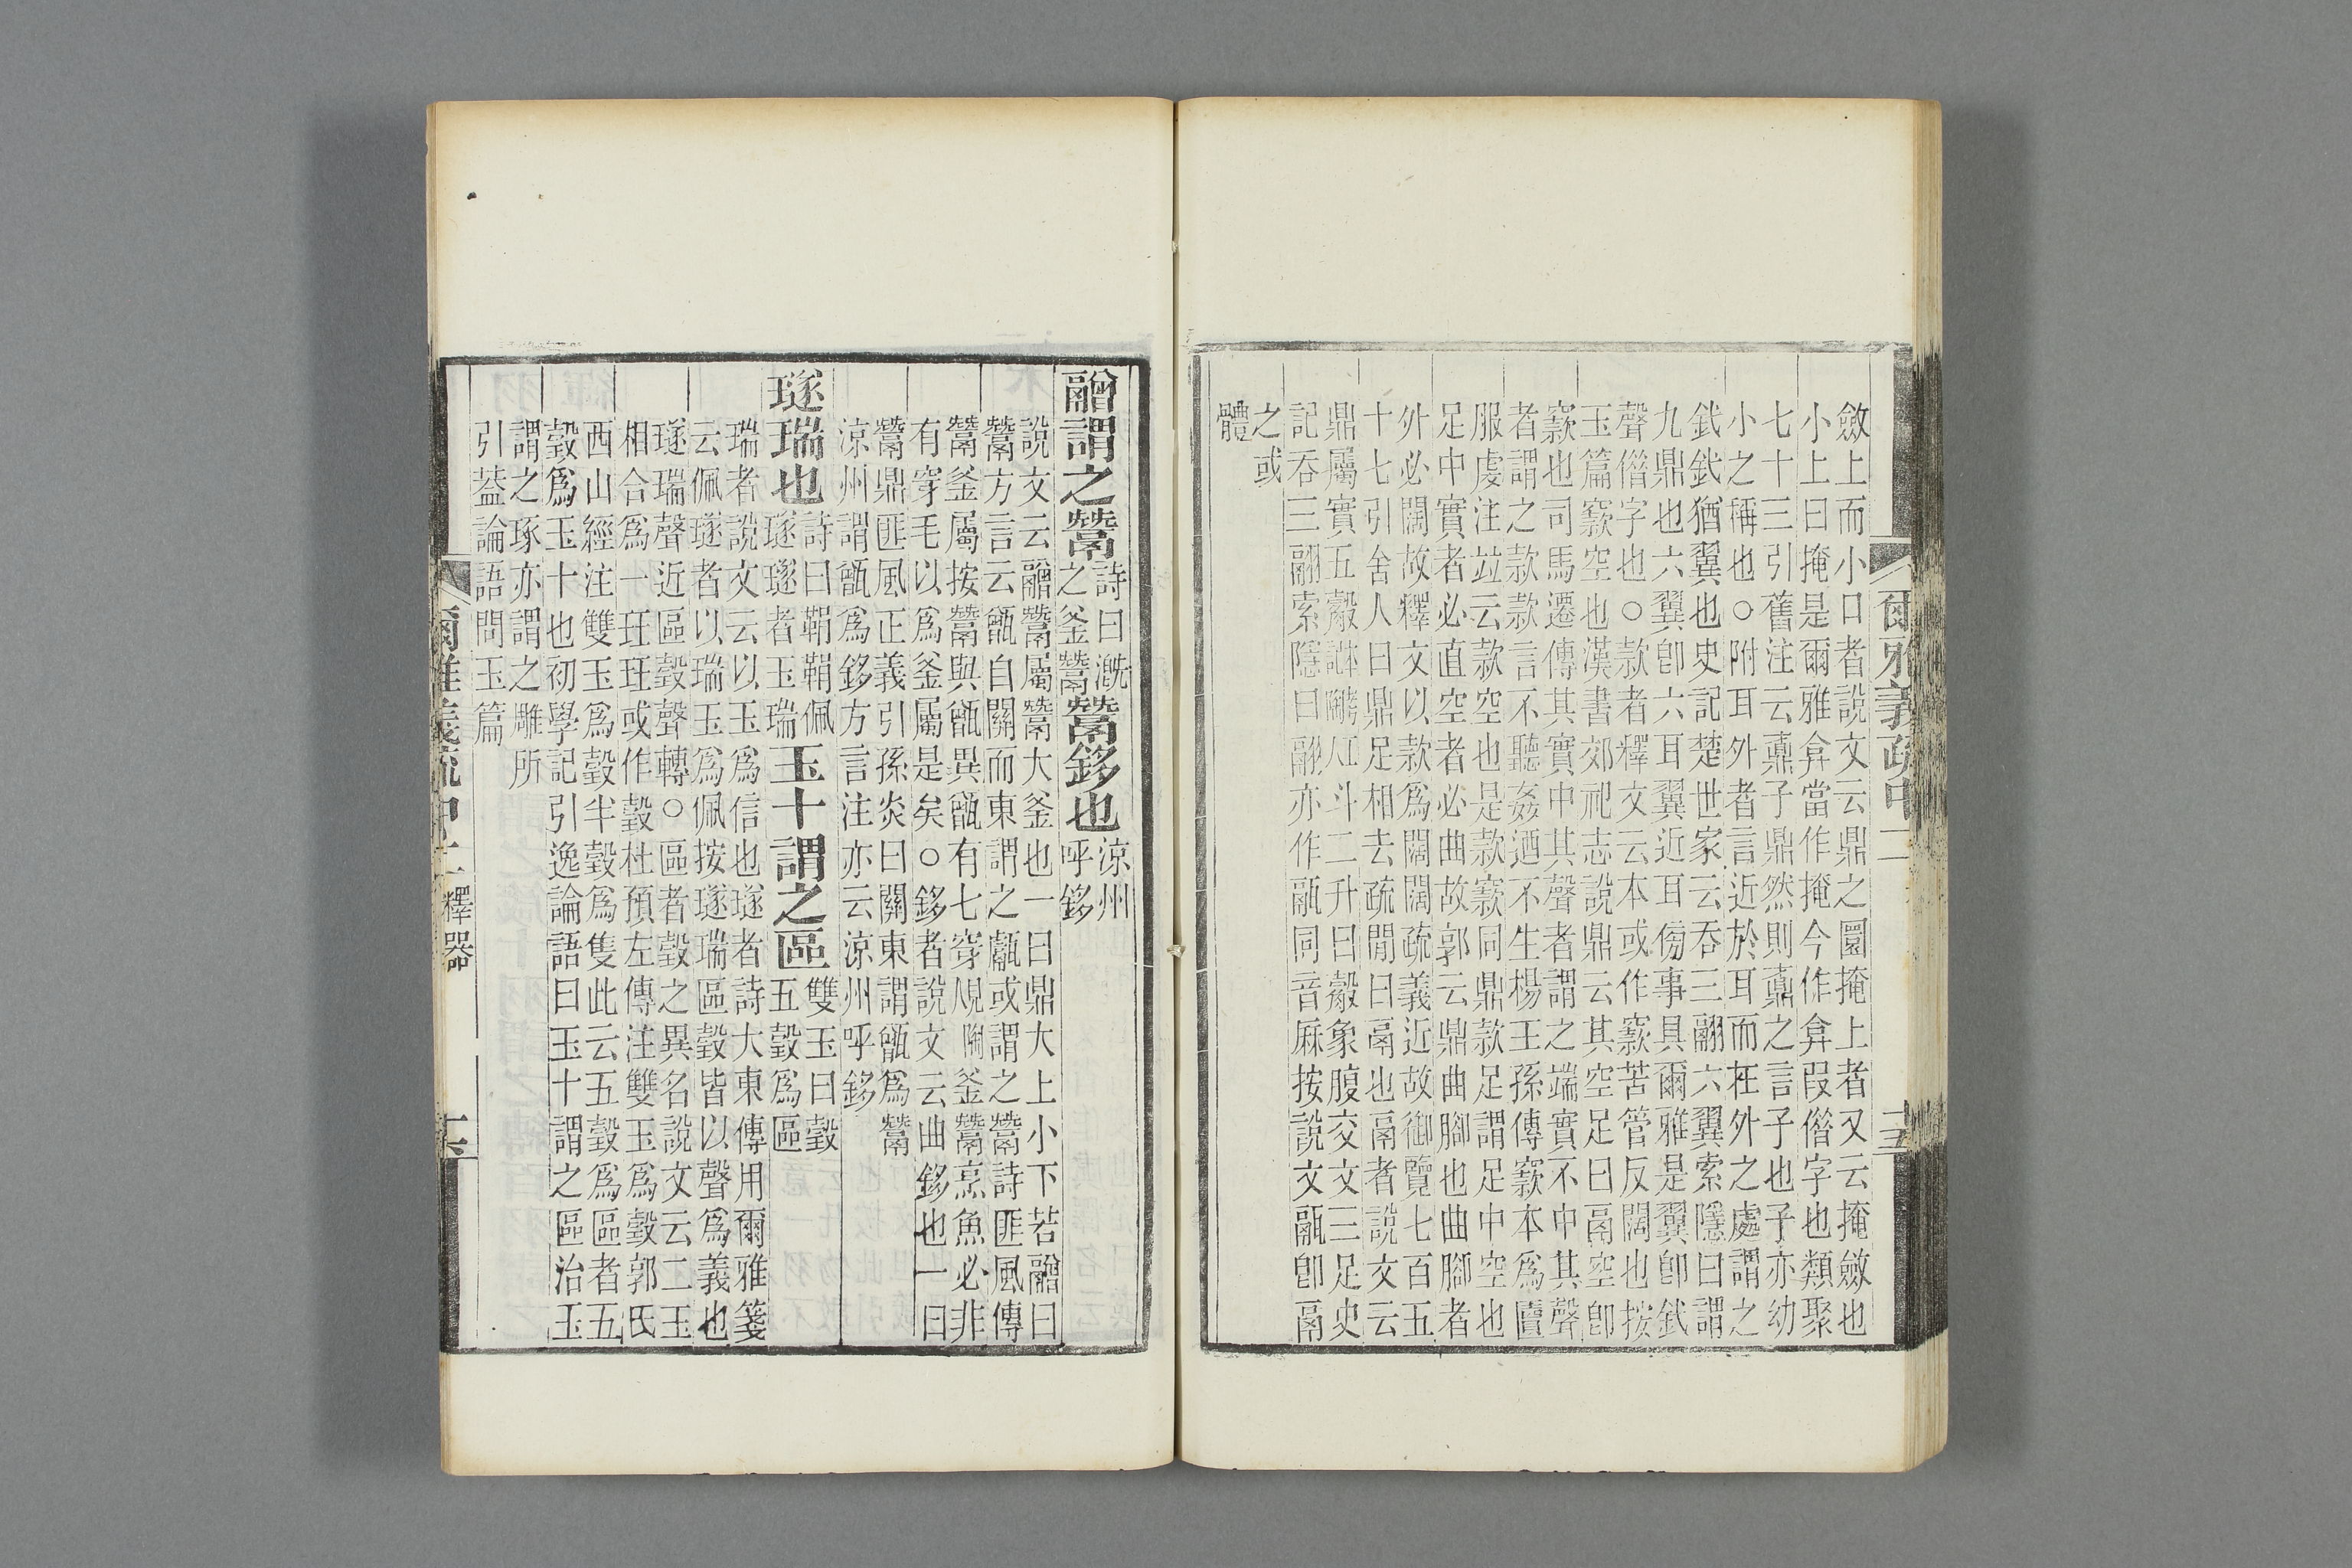 爾雅義疏中二
十五
斂上而小口者說文云鼎之圜掩上者又云掩斂也
小上曰掩是爾雅弇當作掩今作弇叚借字也類聚
七十三引舊注云鼒子鼎然則鼒之言子也子亦幼
小之稱也○附耳外者言近於耳而在外之處謂之
釴釴猶翼也史記楚世家云吞三翮六翼索隱曰謂
九鼎也六翼卽六耳翼近耳傍事具爾雅是翼卽釴
聲借字也○款者釋文云本或作窾苦管反闊也按
玉篇窾空也漢書郊祀志說鼎云其空足曰鬲空卽
窾也司馬遷傳其實中其聲者謂之端實不中其聲
者謂之款款言不聽姦迺不生楊王孫傳窾木爲匵
服虔注竝云款空也是款窾同鼎款足謂足中空也
足中實者必直空者必曲故郭云鼎曲腳也曲腳者
外必闊故釋文以款爲闊闊疏義近故御覽七百五
十七引舍人曰鼎足相去疏閒曰鬲也鬲者說文云
鼎屬實五觳斗二升曰觳象腹交文三足史
記吞三翮索隱曰翮亦作䰛同音麻按說文䰛卽鬲
之或
體
䰝謂之鬵詩曰漑之釜鬵鬵鉹也涼州呼鉹
說文云䰝鬵屬鬵大釜也一曰鼎大上小下若䰝曰
鬵方言云甑自關而東謂之甗或謂之鬵詩匪風傳
鬵釜屬按鬵與甑異甑有七穿見陶釜鬵烹魚必非
有穿毛以爲釜屬是矣○鉹者說文云曲鉹也一曰
鬵鼎匪風正義引孫炎曰關東謂甑爲鬵
涼州謂甑爲鉹方言注亦云涼州呼鉹
璲瑞也詩曰鞙鞙佩璲璲者玉瑞玉十謂之區雙玉曰瑴五瑴爲區
瑞者說文云以玉爲信也璲者詩大東傳用爾雅箋
云佩璲者以瑞玉爲佩按璲瑞區瑴皆以聲爲義也
璲瑞聲近區瑴聲轉○區者瑴之異名說文云二玉
相合爲一玨玨或作瑴杜預左傳注雙玉爲瑴郭氏
西山經注雙玉爲瑴半瑴爲隻此云五瑴爲區者五
瑴爲玉十也初學記引逸論語曰玉十謂之區治玉
謂之琢亦謂之雕所
引葢論語問玉篇
爾雅義疏中二釋器
十六